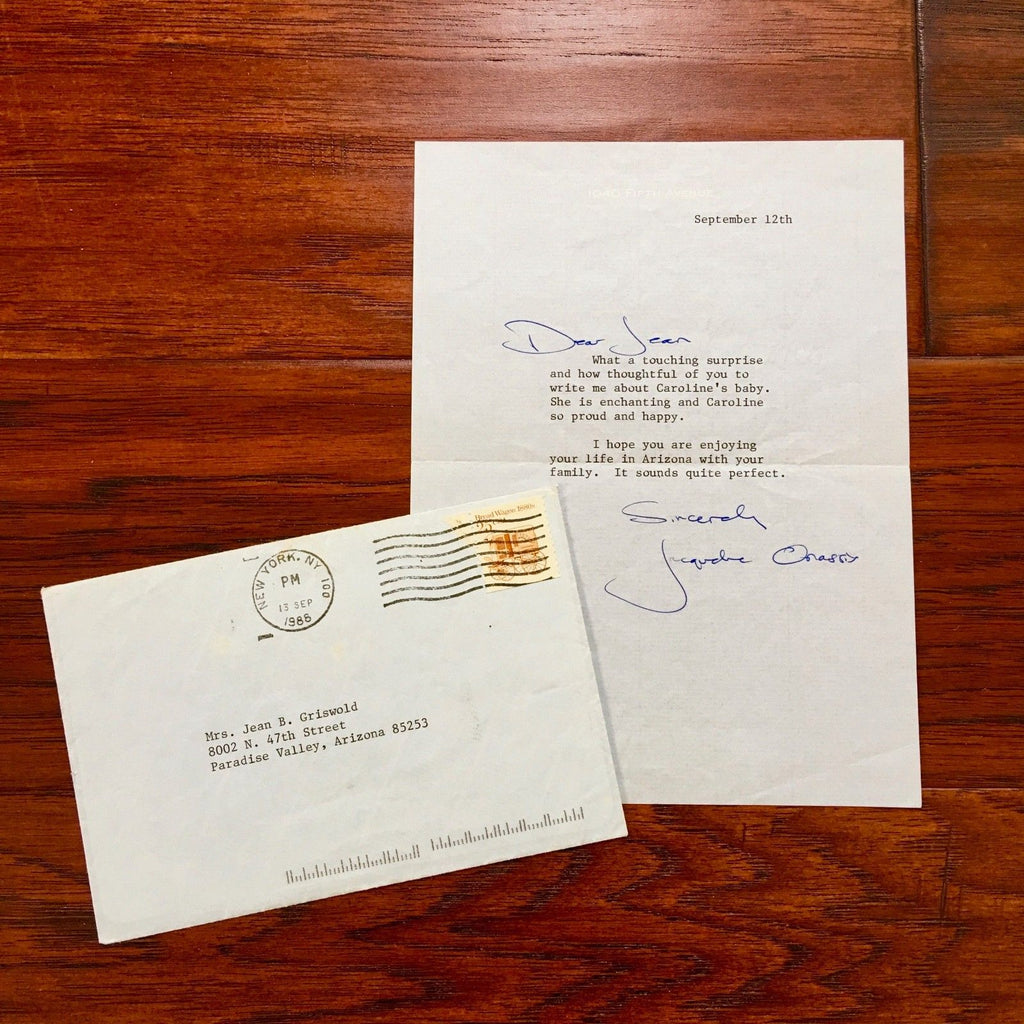 1040 FIFTH AVENUE
September 12th
Dear Jean
What a touching surprise
and how thoughtful of you to
write me about Caroline's baby.
She is enchanting and Caroline
so proud and happy.
I hope you are enjoying
your life in Arizona with your
family. It sounds quite perfect.
Sincerely
Jacqueline Onassis
Bread Wagon 1880s
NEW YORK, NY 100
PM
13 SEP
1988
Mrs. Jean B. Griswold
8002 N. 47th Street
Paradise Valley, Arizona 85253